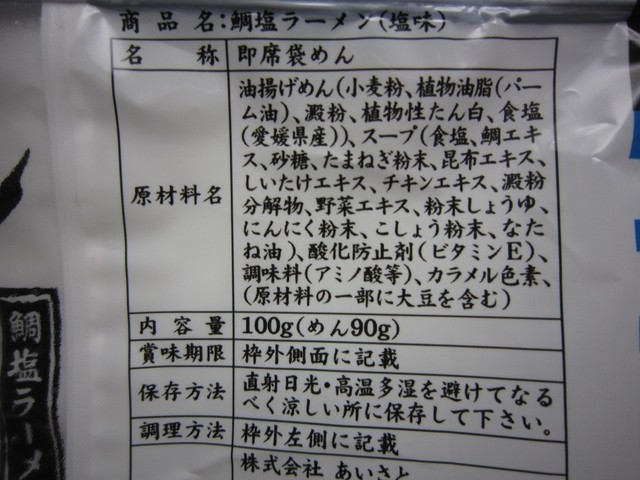 商品名:鯛塩ラーメン(塩味)
名称 即席袋めん
原材料名
油揚げめん(小麦粉、植物油脂(パー
ム油)、澱粉、植物性たん白、食塩
(愛媛県産))、スープ(食塩、鯛エキ
ス、砂糖、たまねぎ粉末、昆布エキス、
しいたけエキス、チキンエキス、澱粉
分解物、野菜エキス、粉末しょうゆ、
にんにく粉末、こしょう粉末、なた
ね油)、酸化防止剤(ビタミンE)、
調味料(アミノ酸等)、カラメル色素、
(原材料の一部に大豆を含む)
内容量 100g(めん90g)
賞味期限 枠外側面に記載
保存方法 直射日光・高温多湿を避けてなる
べく涼しい所に保存して下さい。
調理方法 枠外左側に記載
株式会社 あいさと
鯛塩ラーメ